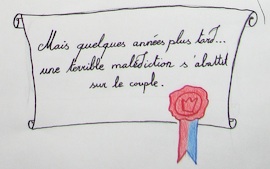 Mais quelques années plus tard...
une terrible malédiction s'abattit
sur le couple.